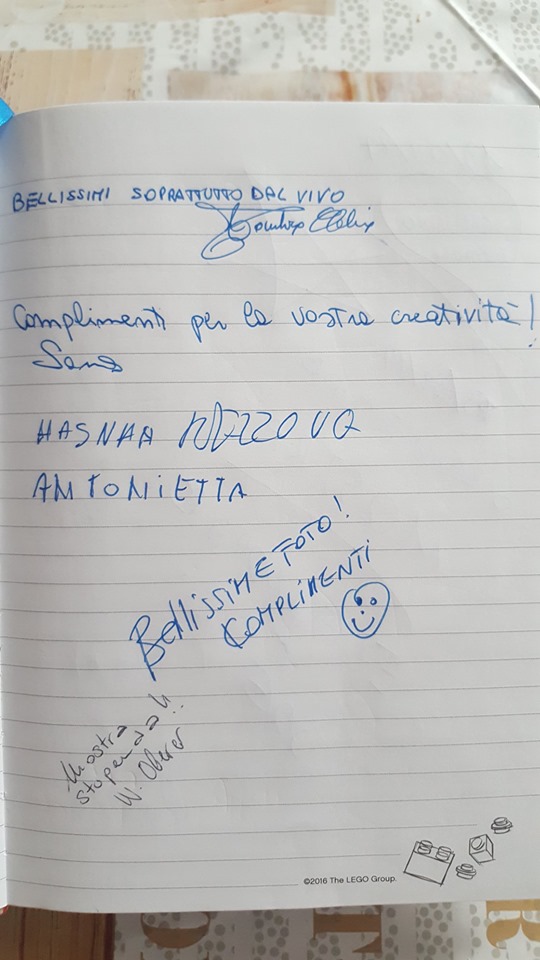 BELLISSIMI SOPRATTUTTO DAL VIVO
Complimenti per la vostra creatività!
HASNAA
ANTONIETTA
BELLISSIME FOTO!
COMPLIMENTI
Mostra
stupenda!!
W.
©2016 The LEGO Group.